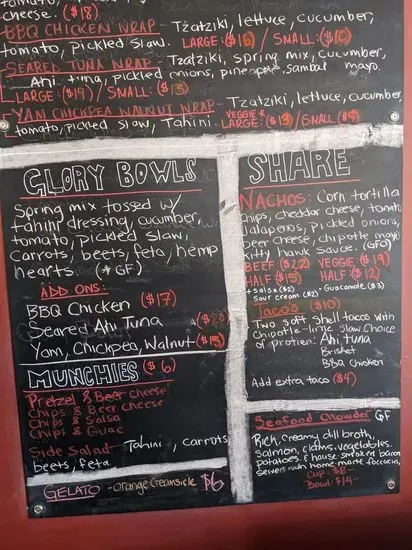 cheese. ($18)
BBQ CHICKEN WRAP - Tzatziki, lettuce, cucumber,
tomato, pickled slaw. LARGE: ($16) / SMALL: ($10)
SEARED TUNA WRAP - Tzatziki, spring mix, cucumber,
Ahi tuna, pickled onions, pineapple, sambal mayo.
LARGE: ($19) / SMALL: ($13)
YAM CHICKPEA WALNUT WRAP - Tzatziki, lettuce, cucumber,
tomato, pickled slaw, Tahini. VEGGIE* LARGE: ($13) / SMALL ($9)
GLORY BOWLS
Spring mix tossed w/
tahini dressing, cucumber,
tomato, pickled slaw,
carrots, beets, feta, hemp
hearts. (*GF)
ADD ONS:
BBQ Chicken ($17)
Seared Ahi Tuna
Yam, Chickpea, Walnut ($15)
MUNCHIES ($6)
Pretzel & Beer cheese
Chips & Beer cheese
Chips & Salsa
Chips & Guac
Side Salad - Tahini, carrots
beets, feta
GELATO - Orange Creamsicle $6
SHARE
NACHOS: Corn tortilla
chips, cheddar cheese, tomato
jalapeños, pickled onions,
beer cheese, chipotle mayo
Kitty hawk sauce (GFO)
BEEF: ($22) VEGGIE: ($19)
HALF ($15) HALF ($12)
+ Salsa ($2) + Guacamole ($3)
Sour cream ($2)
Tacos ($10)
Two soft shell tacos with
chipotle-lime slaw. Choice
of protien: Ahi tuna
Brisket
BBQ Chicken
Add extra taco ($4)
Seafood Chowder GF
Rich, creamy dill broth,
Salmon, clams, vegetables,
potatoes, & house smoked bacon
served with home-made foccacia.
Cup - $8-
Bowl: $14-